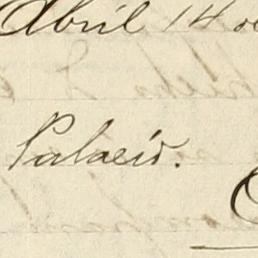 Abril 14 de
Palacio.